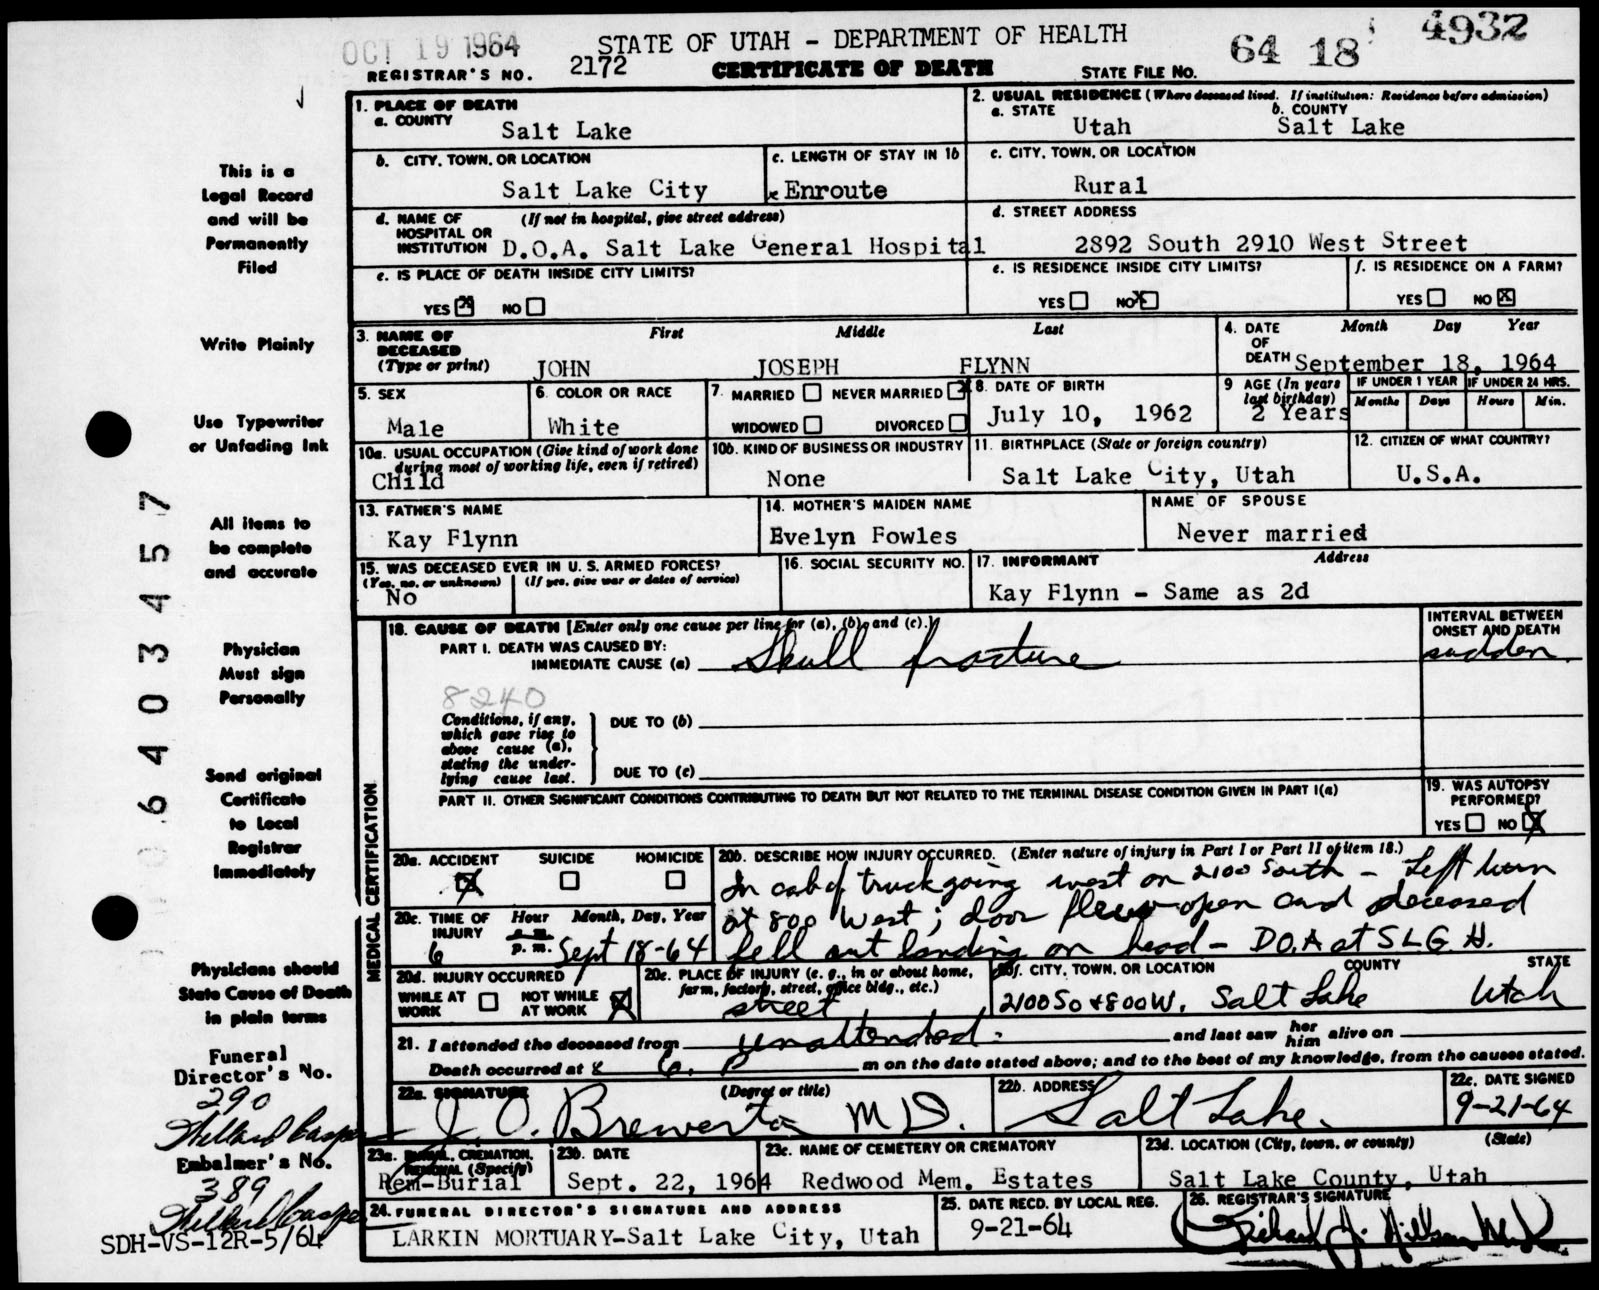 OCT 19 1964
STATE OF UTAH - DEPARTMENT OF HEALTH
64 18 4932
REGISTRAR'S NO. 2172 CERTIFICATE OF DEATH STATE FILE No.
This is a
Legal Record
and will be
Permanently
Filed
Write Plainly
Use Typewriter
or Unfading Ink
All items to
be complete
and accurate
Physician
Must sign
Personally
Send original
Certificate
to Local
Registrar
Immediately
Physicians should
State Cause of Death
in plain terms
Funeral
Director's No.
290
Embalmer's No.
389
SDH-VS-12R-5/64
6403457
1. PLACE OF DEATH
a. COUNTY
Salt Lake
2. USUAL RESIDENCE (Where deceased lived. If institution: Residence before admission)
a. STATE b. COUNTY
Utah Salt Lake
b. CITY, TOWN, OR LOCATION
Salt Lake City
c. LENGTH OF STAY IN 1b
Enroute
c. CITY, TOWN, OR LOCATION
Rural
d. NAME OF (If not in hospital, give street address)
HOSPITAL OR
INSTITUTION D.O.A. Salt Lake General Hospital
d. STREET ADDRESS
2892 South 2910 West Street
e. IS PLACE OF DEATH INSIDE CITY LIMITS?
YES X NO
e. IS RESIDENCE INSIDE CITY LIMITS?
YES NO X
f. IS RESIDENCE ON A FARM?
YES NO X
3. NAME OF First Middle Last
DECEASED
(Type or print) JOHN JOSEPH FLYNN
4. DATE Month Day Year
OF
DEATH September 18, 1964
5. SEX
Male
6. COLOR OR RACE
White
7. MARRIED NEVER MARRIED X
WIDOWED DIVORCED
8. DATE OF BIRTH
July 10, 1962
9 AGE (In years
last birthday)
2 Years
IF UNDER 1 YEAR IF UNDER 24 HRS.
Months Days Hours Min.
10a. USUAL OCCUPATION (Give kind of work done
during most of working life, even if retired)
Child
10b. KIND OF BUSINESS OR INDUSTRY
None
11. BIRTHPLACE (State or foreign country)
Salt Lake City, Utah
12. CITIZEN OF WHAT COUNTRY?
U.S.A.
13. FATHER'S NAME
Kay Flynn
14. MOTHER'S MAIDEN NAME
Evelyn Fowles
NAME OF SPOUSE
Never married
15. WAS DECEASED EVER IN U. S. ARMED FORCES?
(Yes, no, or unknown) (If yes, give war or dates of service)
No
16. SOCIAL SECURITY NO.
17. INFORMANT Address
Kay Flynn - Same as 2d
MEDICAL CERTIFICATION
18. CAUSE OF DEATH [Enter only one cause per line for (a), (b), and (c).]
PART I. DEATH WAS CAUSED BY:
IMMEDIATE CAUSE (a) Skull fracture
INTERVAL BETWEEN
ONSET AND DEATH
sudden
8240
Conditions, if any,
which gave rise to
above cause (a),
stating the under-
lying cause last.
DUE TO (b)
DUE TO (c)
PART II. OTHER SIGNIFICANT CONDITIONS CONTRIBUTING TO DEATH BUT NOT RELATED TO THE TERMINAL DISEASE CONDITION GIVEN IN PART I(a)
19. WAS AUTOPSY
PERFORMED?
YES NO X
20a. ACCIDENT SUICIDE HOMICIDE
X
20b. DESCRIBE HOW INJURY OCCURRED. (Enter nature of injury in Part I or Part II of item 18.)
In cab of truck going west on 2100 South - Left turn
at 800 West; door flew open and deceased
fell out landing on head - D.O.A at S L G H.
20c. TIME OF Hour Month, Day, Year
INJURY a. m.
6 p. m. Sept 18-64
20d. INJURY OCCURRED
WHILE AT WORK NOT WHILE AT WORK X
20e. PLACE OF INJURY (e. g., in or about home,
farm, factory, street, office bldg., etc.)
street
20f. CITY, TOWN, OR LOCATION COUNTY STATE
2100 So + 800 W. Salt Lake Utah
21. I attended the deceased from unattended. and last saw her him alive on
Death occurred at 6. P m on the date stated above; and to the best of my knowledge, from the causes stated.
22a. SIGNATURE (Degree or title)
J. O. Brewerton M D.
22b. ADDRESS
Salt Lake.
22c. DATE SIGNED
9-21-64
23a. BURIAL, CREMATION,
REMOVAL (Specify)
Rem-Burial
23b. DATE
Sept. 22, 1964
23c. NAME OF CEMETERY OR CREMATORY
Redwood Mem. Estates
23d. LOCATION (City, town, or county) (State)
Salt Lake County, Utah
24. FUNERAL DIRECTOR'S SIGNATURE AND ADDRESS
LARKIN MORTUARY-Salt Lake City, Utah
25. DATE RECD. BY LOCAL REG.
9-21-64
26. REGISTRAR'S SIGNATURE